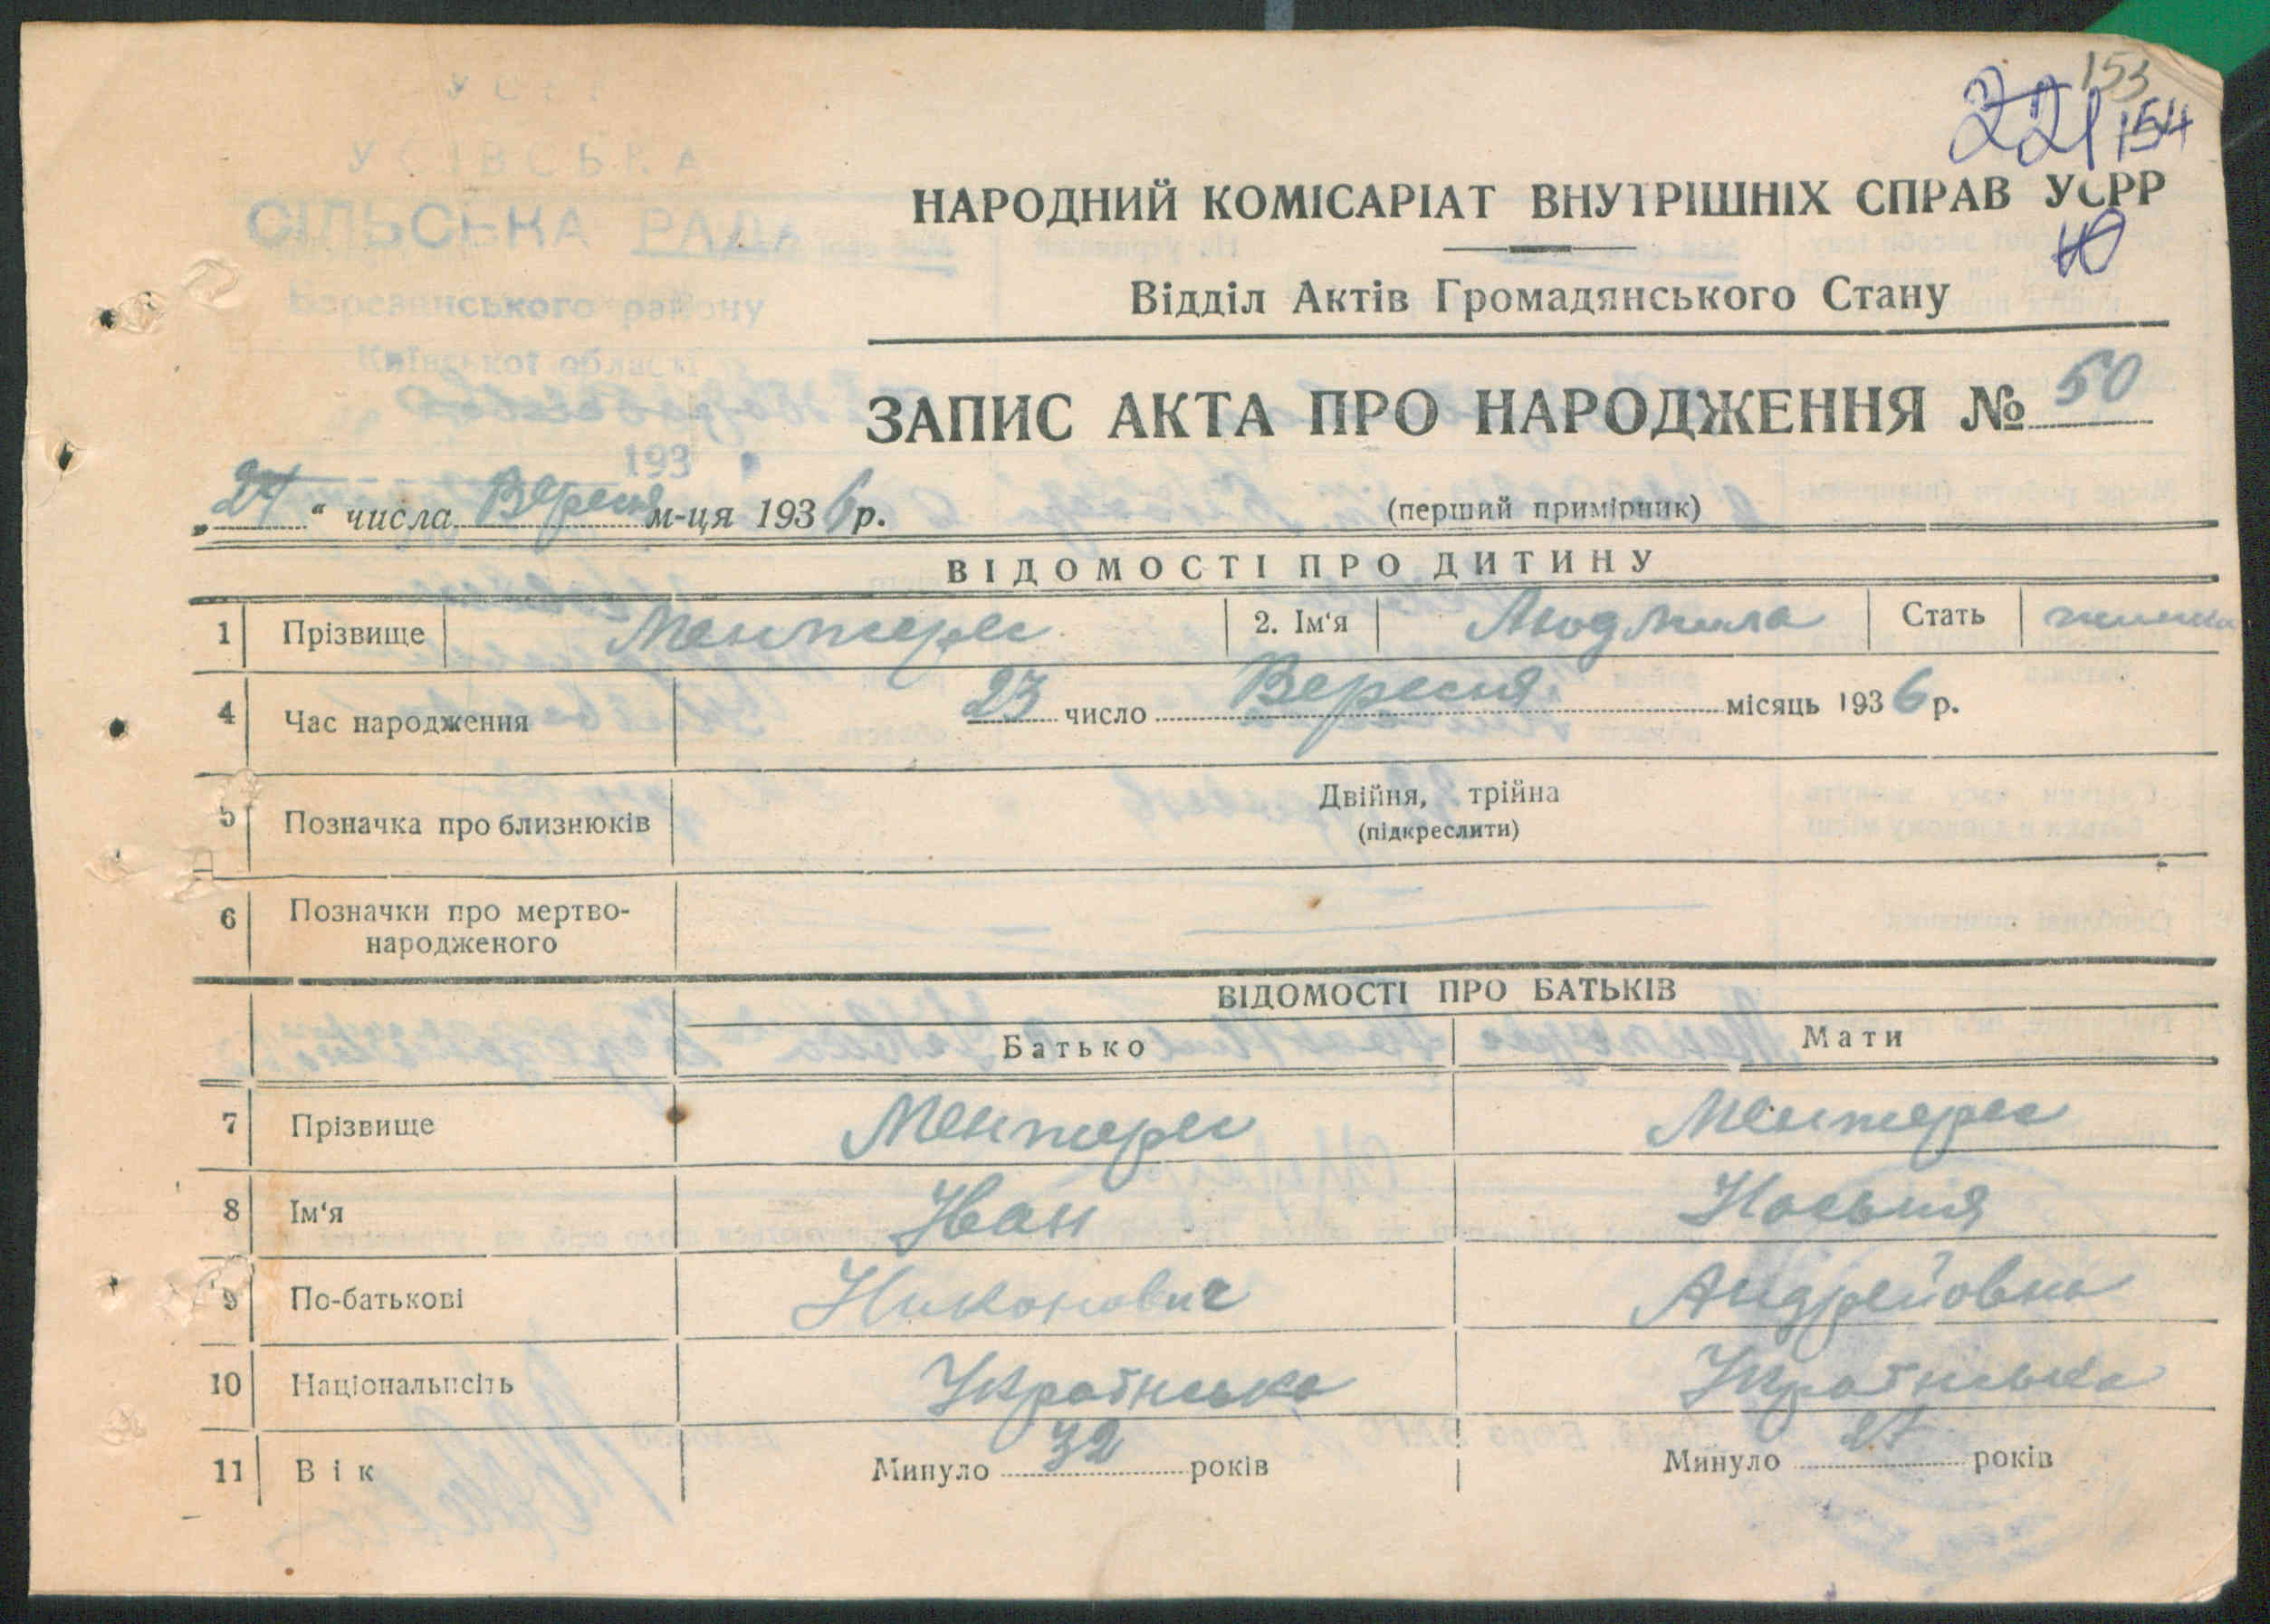 153
221 154
УСРР
УСІВСЬКА
СІЛЬСЬКА РАДА
Київської області
193
НАРОДНИЙ КОМІСАРІАТ ВНУТРІШНІХ СПРАВ УСРР
Відділ Актів Громадянського Стану
ЗАПИС АКТА ПРО НАРОДЖЕННЯ № 50
„24“ числа Вересня м-ця 1936 р.
(перший примірник)
ВІДОМОСТІ ПРО ДИТИНУ
1 Прізвище Ментерей 2. Ім‘я Людмила Стать жиноча
4 Час народження 23 число Вересня місяць 1936 р.
5 Позначка про близнюків Двійня, трійна
(підкреслити)
6 Позначки про мертво-
народженого
ВІДОМОСТІ ПРО БАТЬКІВ
Батько Мати
7 Прізвище Ментерей Ментерей
8 Ім‘я Іван
9 По-батькові Никонович Андрейовна
10 Національність Українська Українська
11 Вік Минуло 32 років Минуло 27 років